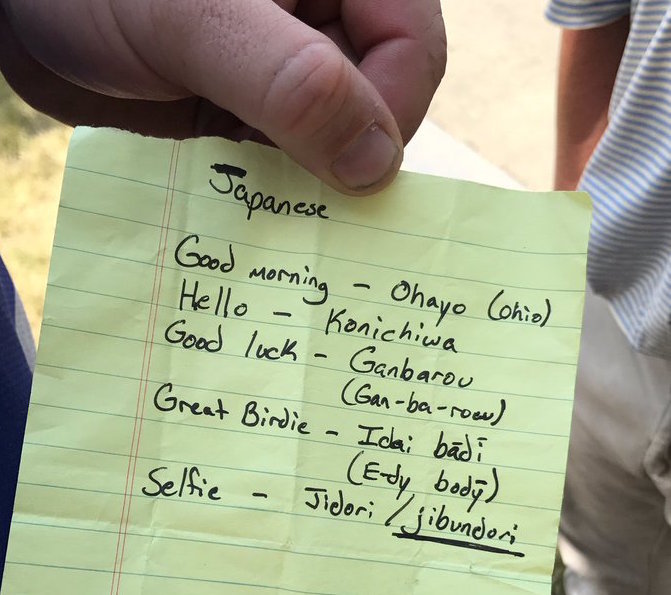 Japanese
Good morning - Ohayo (Ohio)
Hello - Konichiwa
Good luck - Ganbarou
(Gan-ba-row)
Great Birdie - Idai bādī
(E-dy bodȳ)
Selfie - Jidori / jibundori